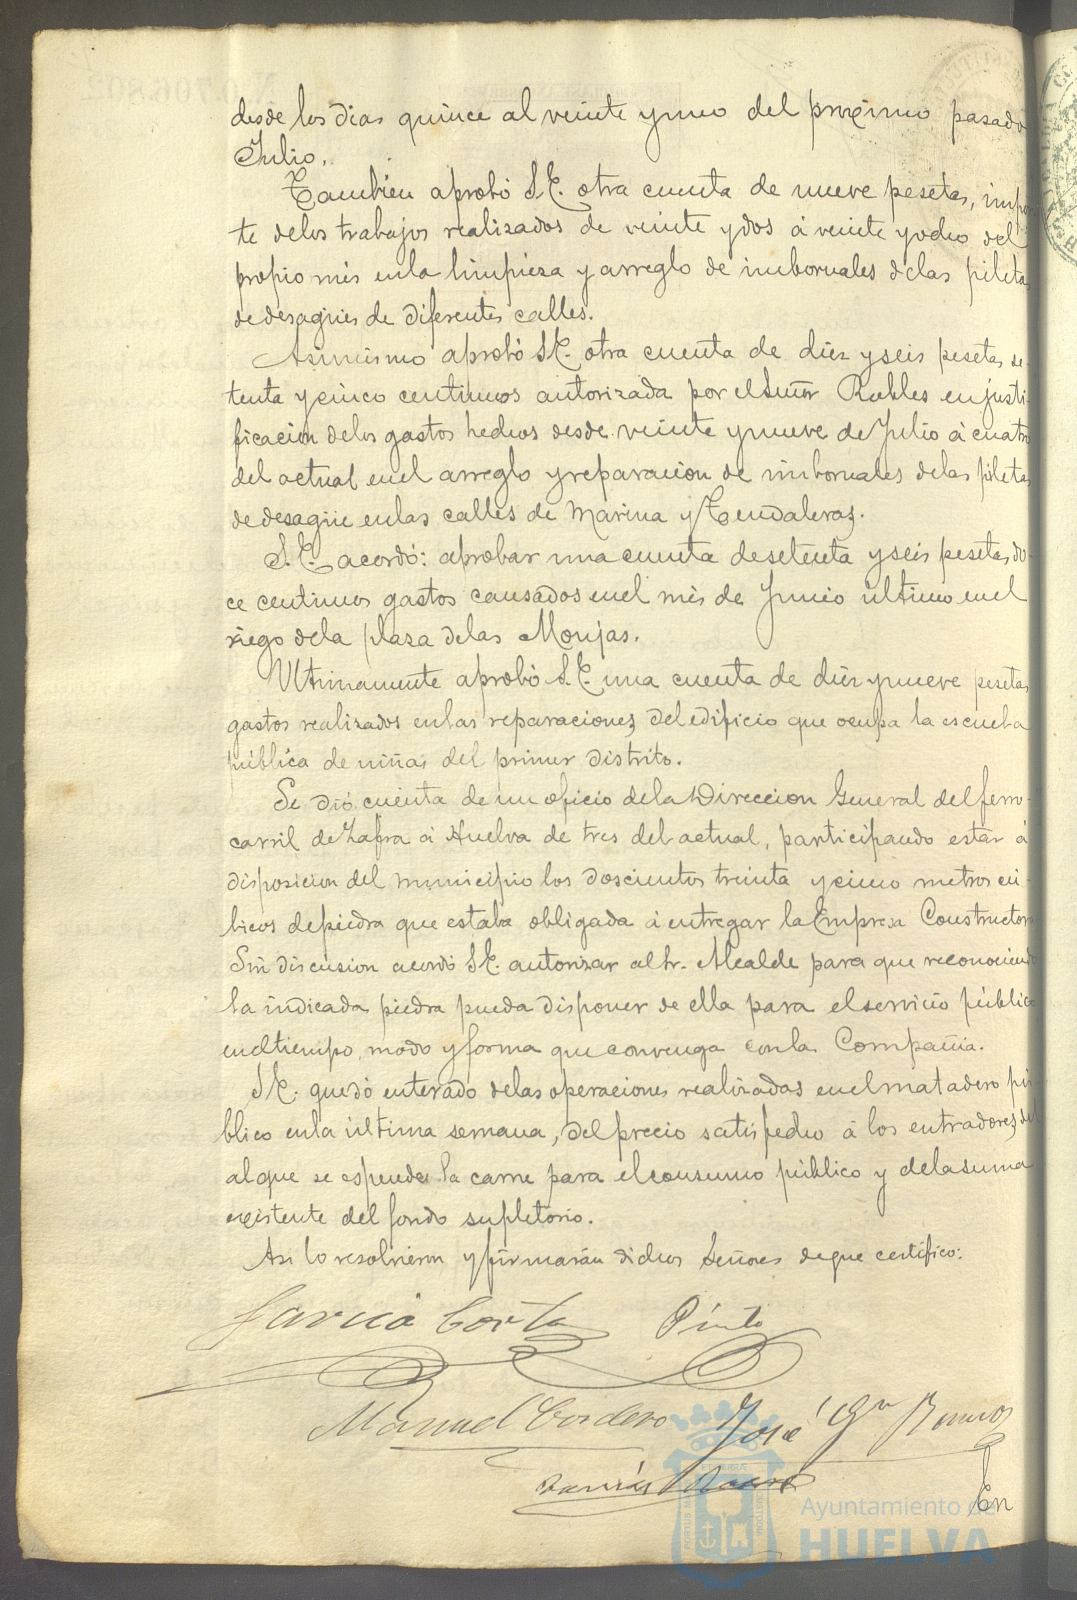 desde los dias quince al veinte y uno del proximo pasado
Julio.
Tambien aprobó S.E. otra cuenta de nueve pesetas, impor
te delos trabajos realizados de veinte y dos á veinte y ocho del
propio mes enla limpieza y arreglo de imbornales delas piletas
de desagües de diferentes calles.
Asimismo aprobó S.E. otra cuenta de diez y seis pesetas se-
tenta y cinco centimos autorizada por el Señor Robles en justi-
ficacion delos gastos hechos desde veinte y nueve de Julio á cuatro
del actual enel arreglo y reparacion de imbornales delas piletas
de desagüe enlas calles de Marina y Tendaleras.
S.E. acordó: aprobar una cuenta desetenta y seis pesetas do-
ce centimos gastos causados enel mes de Junio ultimo enel
riego dela plaza delas Monjas.
Ultimamente aprobó S.E. una cuenta de diez y nueve pesetas
gastos realizados enlas reparaciones del edificio que ocupa la escuela
pública de niñas del primer distrito.
Se dió cuenta de un oficio dela Direccion General del ferro-
carril de Zafra á Huelva de tres del actual, participando estar á
disposicion del municipio los doscientos treinta y cinco metros cú-
bicos de piedra que estaba obligada á entregar la Empresa Constructora
Sin discusion acordó S.E. autorizar al Sr. Alcalde para que reconociendo
la indicada piedra pueda disponer de ella para el servicio público
enel tiempo, modo y forma que convenga con la Compañia.
S.E. quedó enterado delas operaciones realizadas enel matadero pú-
blico enla última semana, del precio satisfecho á los entradores, del
al que se espende la carne para el consumo público y dela suma
existente del fondo supletorio.
Asi lo resolvieron y firmarán dichos Señores deque certifico:
Garcia Corta Pinto
Manuel Cordero José Gª Ramos
En
Ayuntamiento de
HUELVA